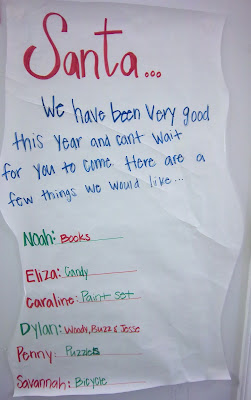 Santa...
We have been very good
this year and cant wait
for you to come Here are a
few things we would like...
Noah: Books
Eliza: Candy
Caraline: Paint set
Dylan: Woody, Buzz & Jesse
Penny: Puzzles
Savannah: Bicycle